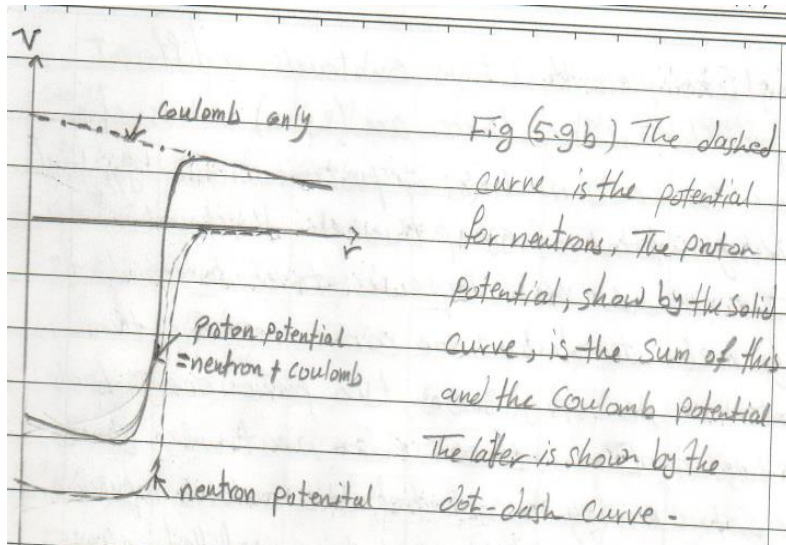 V
coulomb only
r
proton potential
=neutron + coulomb
neutron potenital
Fig (5.9b) The dashed
curve is the potential
for neutrons, The proton
potential, show by the solid
curve, is the sum of this
and the Coulomb potential
The latter is shown by the
dot-dash curve.